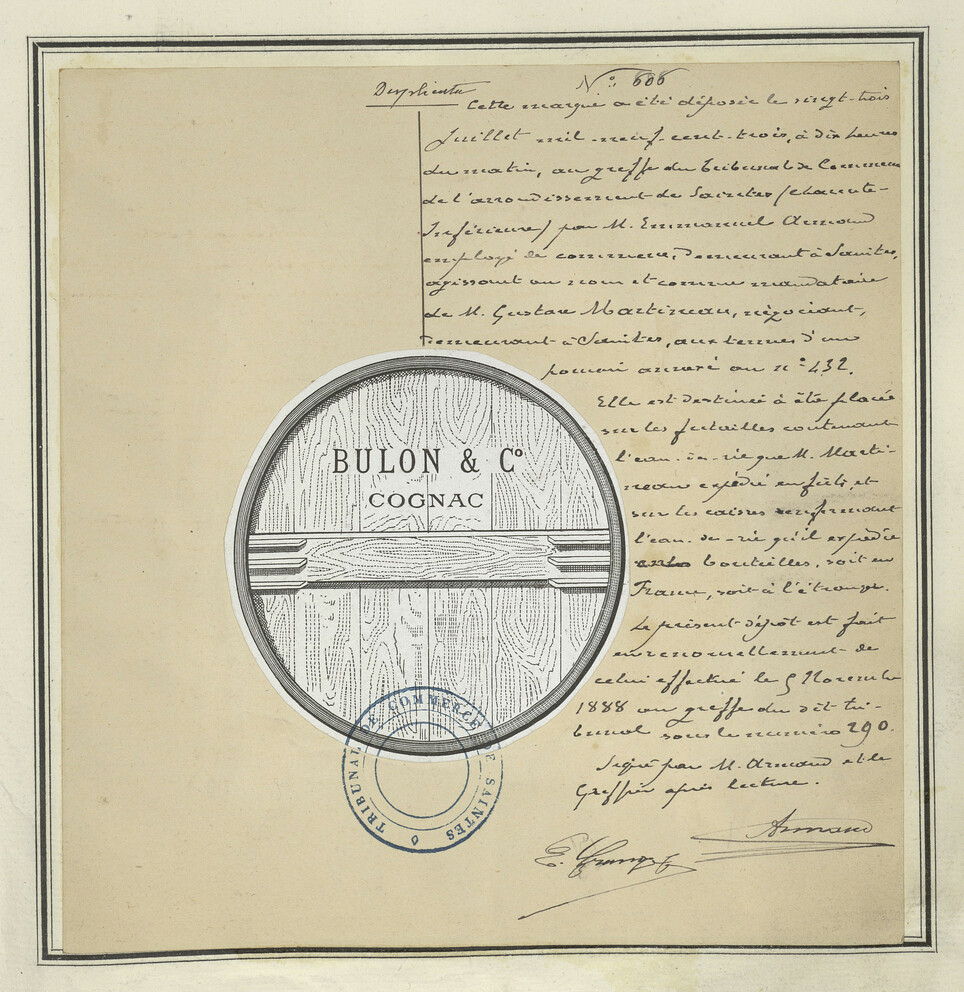 Duplicata
N° 606
Cette marque a été déposée le vingt-trois
Juillet mil-neuf-cent-trois, à dix heures
du matin, au greffe du Tribunal de Commerce
de l'arrondissement de Saintes (Charente-
Inférieure) par M. Emmanuel Armand
employé de commerce, demeurant à Saintes,
agissant au nom et comme mandataire
de M. Gustave Martineau, négociant,
demeurant à Saintes, aux termes d'un
pouvoir annexé au n° 432.
Elle est destinée à être placée
sur les futailles contenant
l'eau-de-vie que M. Marti-
neau expédie en fûts, et
sur les caisses renfermant
l'eau-de-vie qu'il expédie
en bouteilles, soit en
France, soit à l'étranger.
Le présent dépôt est fait
en renouvellement de
celui effectué le 9 Novembre
1888 au greffe du dit tri-
bunal sous le numéro 290.
Signé par M. Armand et le
Greffier après lecture.
Armand
BULON & Co
COGNAC
TRIBUNAL DE COMMERCE DE SAINTES